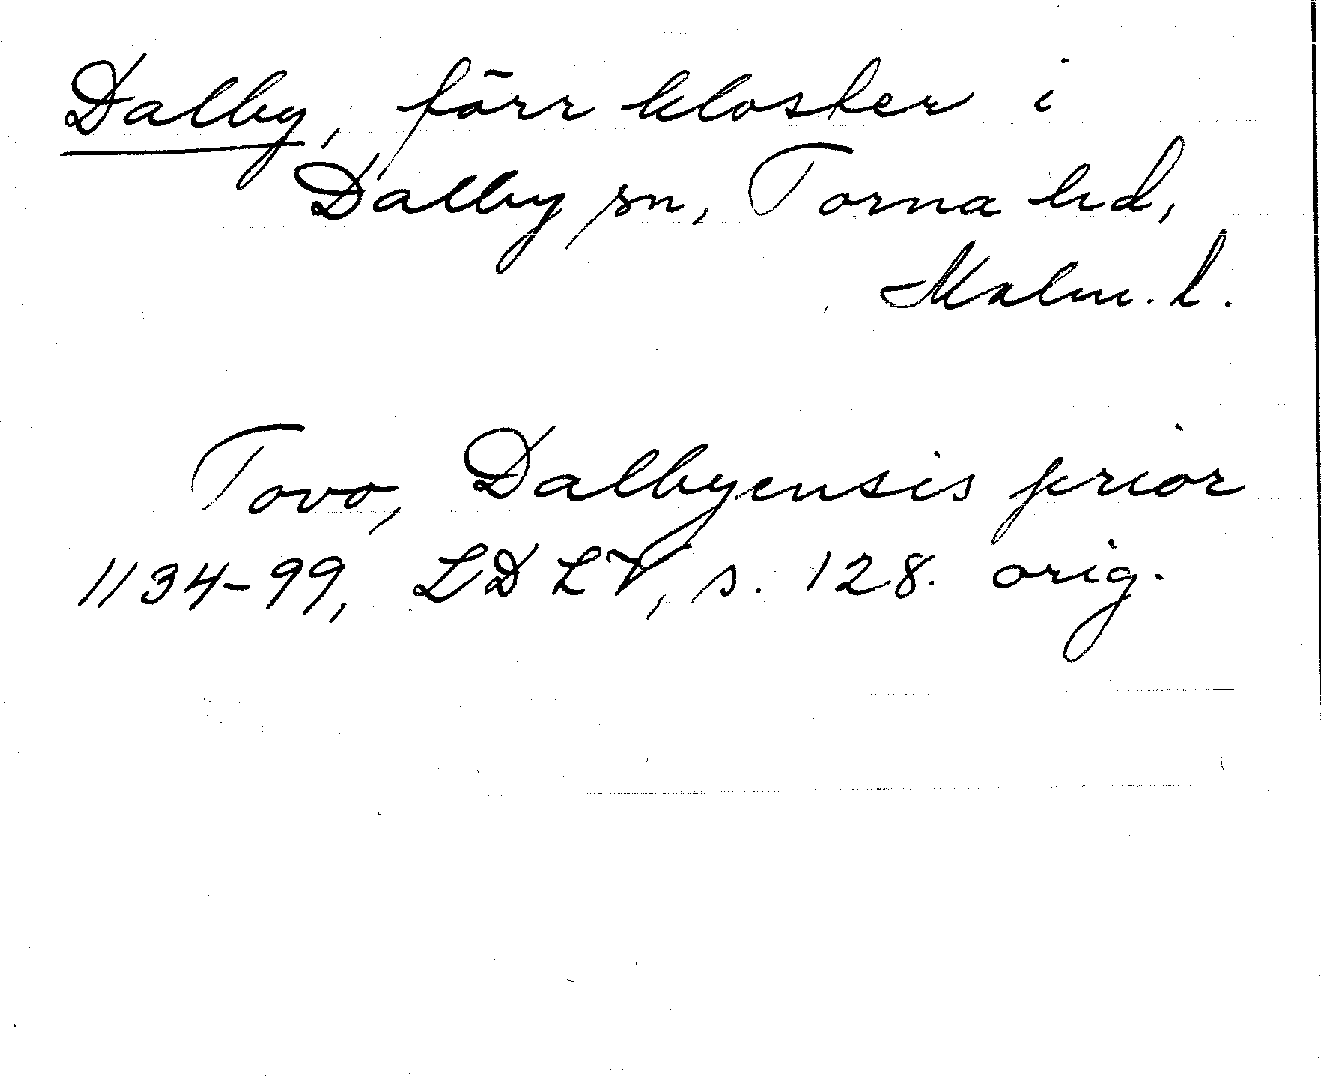 Dalby, förr kloster i
Dalby sn, Torna hd,
Malm. l.
Tovo, Dalbyensis prior
1134-99, LDLV, s. 128. orig.